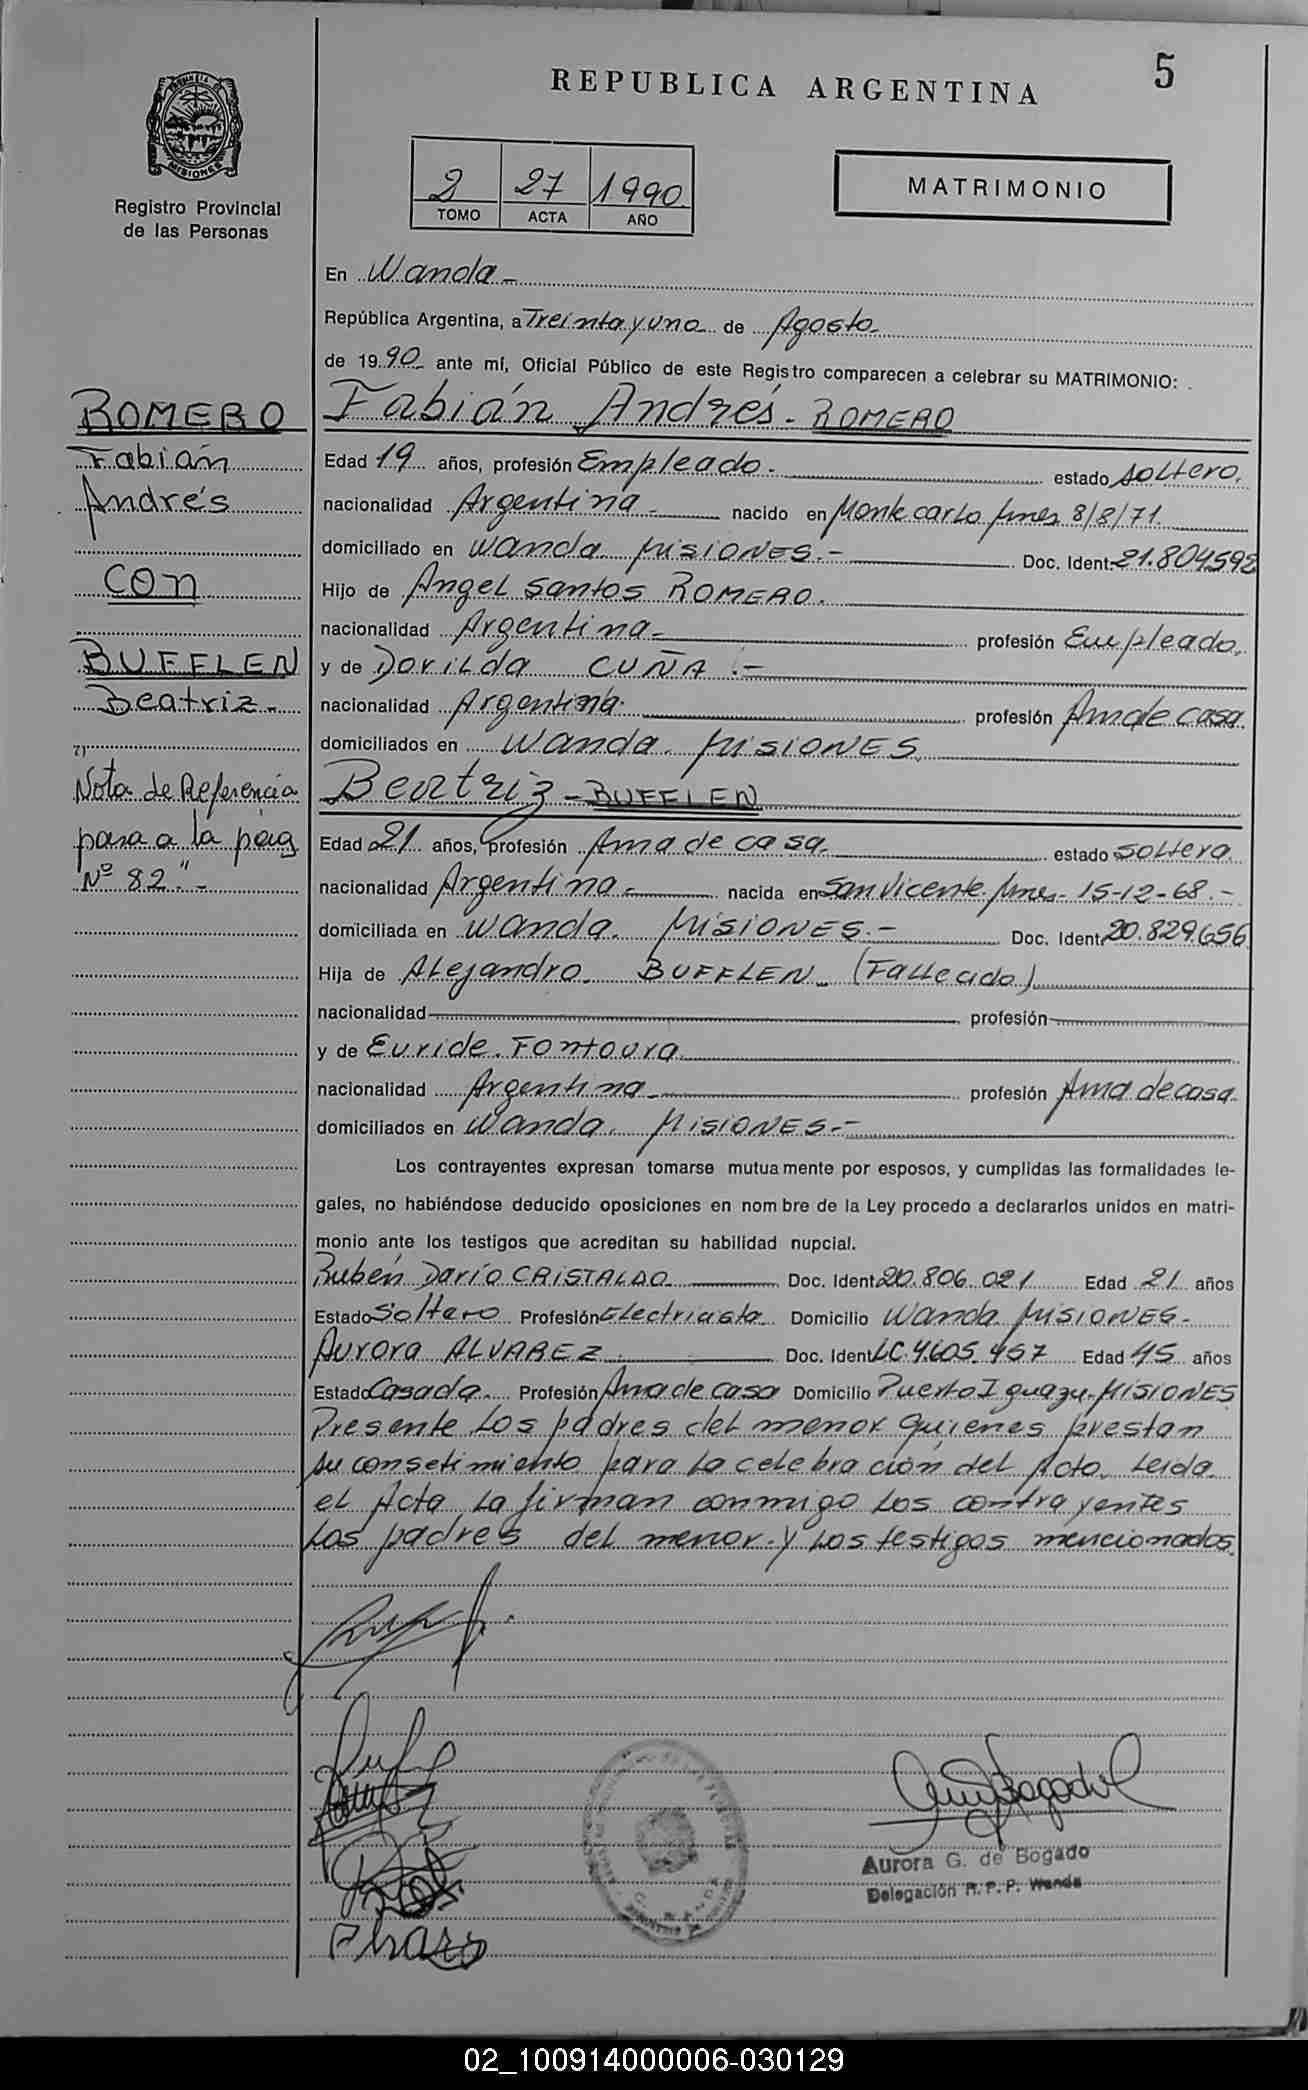 5
REPUBLICA ARGENTINA
MISIONES
Registro Provincial
de las Personas
2 27 1990
TOMO ACTA AÑO
MATRIMONIO
ROMERO
Fabián
Andrés
con
BUFFLEN
Beatriz.-
Nota de Referencia
pasa a la pág
Nº 82"-
En Wanda-
República Argentina, a Treinta y uno de Agosto-
de 1990 ante mí, Oficial Público de este Registro comparecen a celebrar su MATRIMONIO:
Fabián Andrés- ROMERO
Edad 19 años, profesión Empleado- estado soltero.
nacionalidad Argentina- nacido en Montecarlo Mnes 8/8/71.
domiciliado en Wanda MISIONES.- Doc. Ident. 21.804592
Hijo de Angel Santos ROMERO.
nacionalidad Argentina- profesión Empleado.
y de Dorilda CUÑA .-
nacionalidad Argentina. profesión Ama de casa.
domiciliados en Wanda. MISIONES.
Beatriz- BUFFLEN
Edad 21 años, profesión Ama de casa. estado soltera.
nacionalidad Argentina- nacida en San Vicente Mnes- 15-12-68.-
domiciliada en Wanda. MISIONES.- Doc. Ident. 20.829.656
Hija de Alejandro BUFFLEN (Fallecido)
nacionalidad profesión
y de Euride Fontoura
nacionalidad Argentina- profesión Ama de casa.
domiciliados en Wanda. MISIONES.-
Los contrayentes expresan tomarse mutuamente por esposos, y cumplidas las formalidades le-
gales, no habiéndose deducido oposiciones en nombre de la Ley procedo a declararlos unidos en matri-
monio ante los testigos que acreditan su habilidad nupcial.
Rubén Darío CRISTALDO Doc. Ident 20.806.021 Edad 21 años
Estado Soltero Profesión Electricista Domicilio Wanda MISIONES-
Aurora ALVAREZ Doc. Ident LC.4.605.457 Edad 45 años
Estado Casada. Profesión Ama de casa Domicilio Puerto Iguazu-MISIONES
Presente Los padres del menor quienes prestan
su consetimiento para la celebración del Acto. Leida
el Acta La firman conmigo Los contrayentes
Los padres del menor y Los testigos mencionados.
Aurora G. de Bogado
Delegación R.P.P. Wanda
02_100914000006-030129